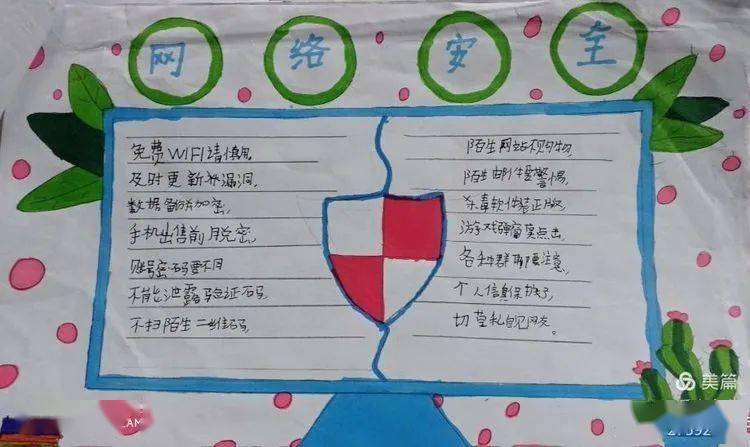 网络安全
免费WIFI请慎用
及时更新补漏洞,
数据备份加密,
手机出售前脱密,
账号密码要不同
不能泄露验证码,
不扫陌生二维码,
陌生网站不购物,
陌生邮件提警惕,
杀毒软件装正版,
游戏弹窗莫点击,
各种群聊要注意,
个人信息保护好,
切莫私自见网友。
美篇